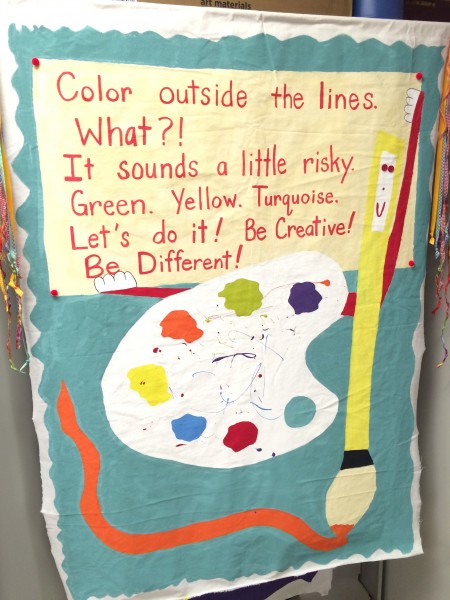 art materials
Color outside the lines.
What?!
It sounds a little risky.
Green. Yellow. Turquoise.
Let's do it! Be Creative!
Be Different!